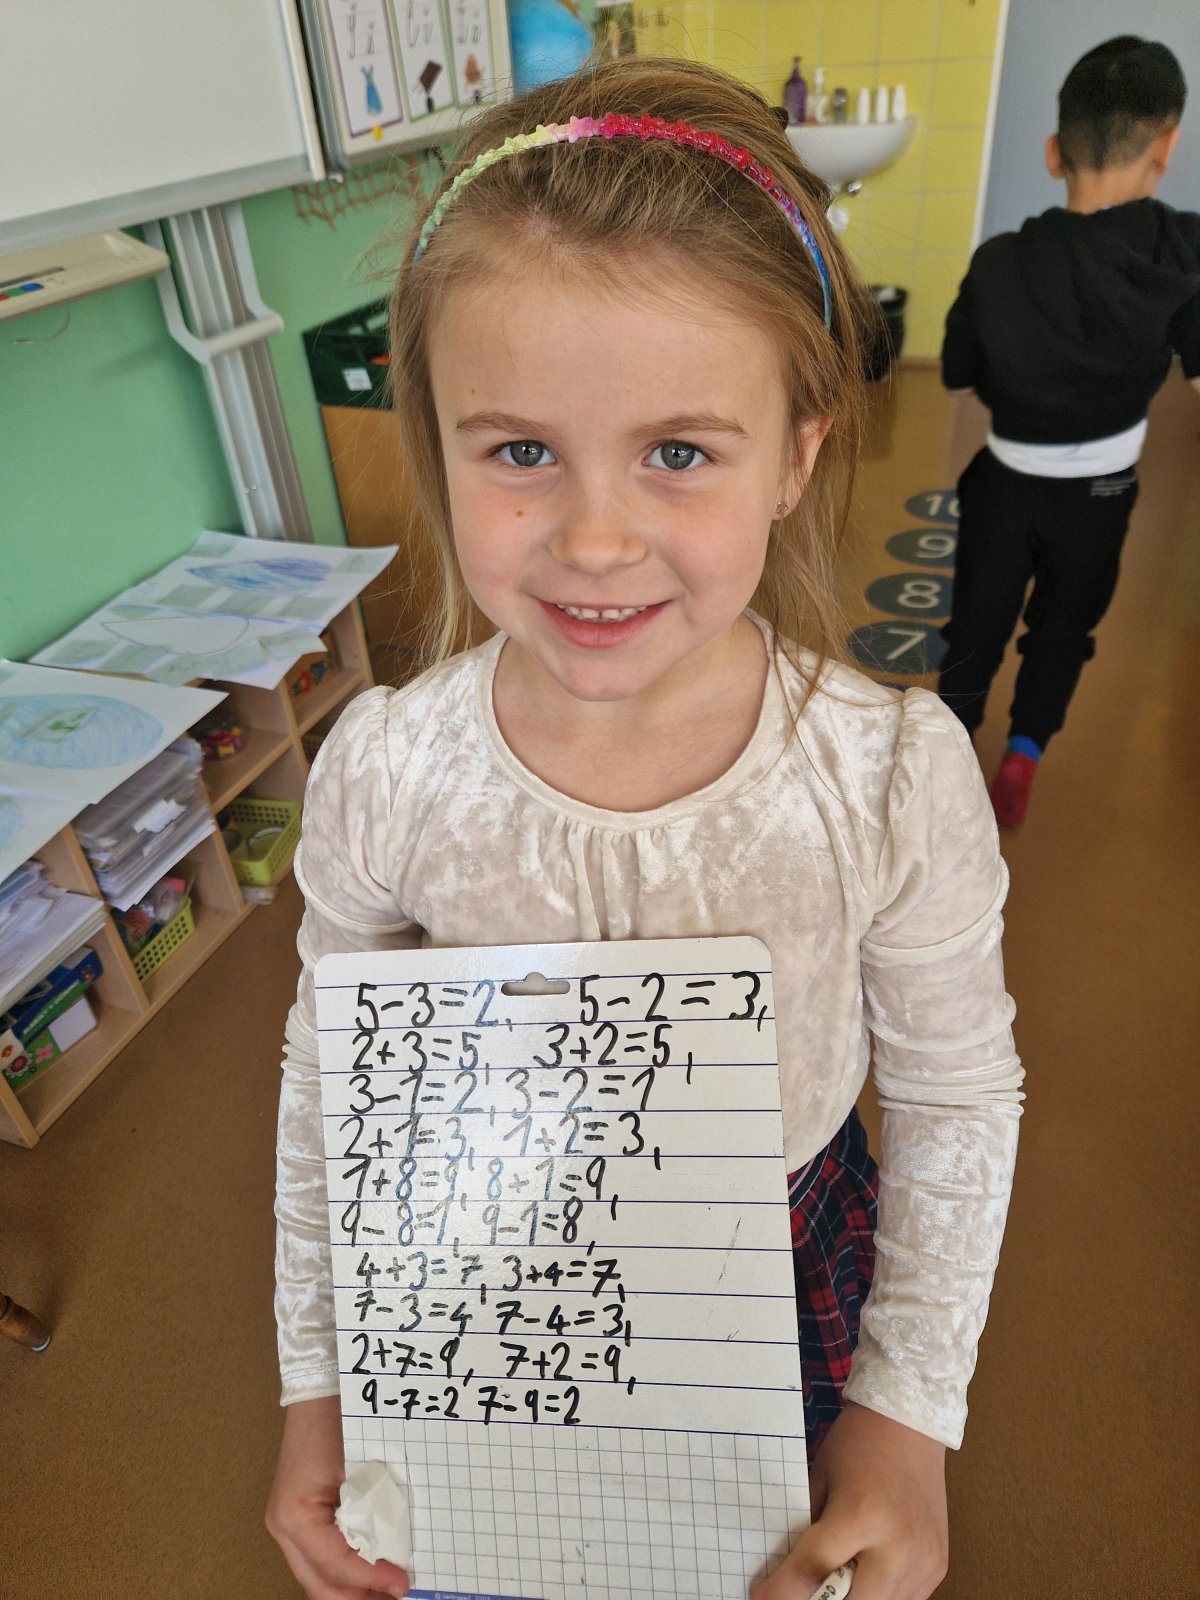 5-3=2, 5-2=3,
2+3=5, 3+2=5,
3-1=2, 3-2=1
2+1=3, 1+2=3,
1+8=9, 8+1=9,
9-8=1, 9-1=8,
4+3=7, 3+4=7,
7-3=4 7-4=3,
2+7=9, 7+2=9,
9-7=2 7-9=2
10
9
8
7